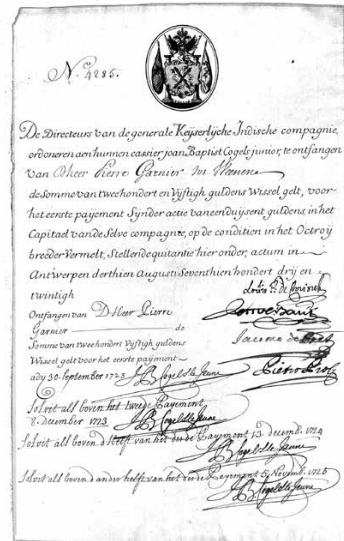 N.º 4285.
De Directeurs van de generale Keyserlijcke Indische compagnie,
ordoneren aen hunnen cassier joan Baptist Cogels junior, te ontfangen
van Dheer Pierre Garnier
de Somme van tweehondert en Vijftigh guldens Wissel gelt, voor
het eerste payement Sijnder actie van eenduijsent guldens, in het
Capitael van de Selve compagnie, op de conditien in het Octroij
breeder Vermelt, Stellende quitantie hier onder, actum in
Antwerpen derthien Augusti Seventhien hondert drij en
twintigh
Ontfangen van D'Heer Pierre
Garnier de
Somme van tweehonden Vijftigh guldens
Wissel gelt voor het eerste payment
ady 30. September 1723 JB Cogels le Jeune
Solvit als boven het tweede Payement
8. december 1723 JB Cogels le Jeune
Solvit als boven d'helft van het derde Payement 13 decemb. 1724
JB Cogels le Jeune
Solvit als boven d'ander helft van het derde Payement 5 Novemb. 1725
JB Cogels le Jeune